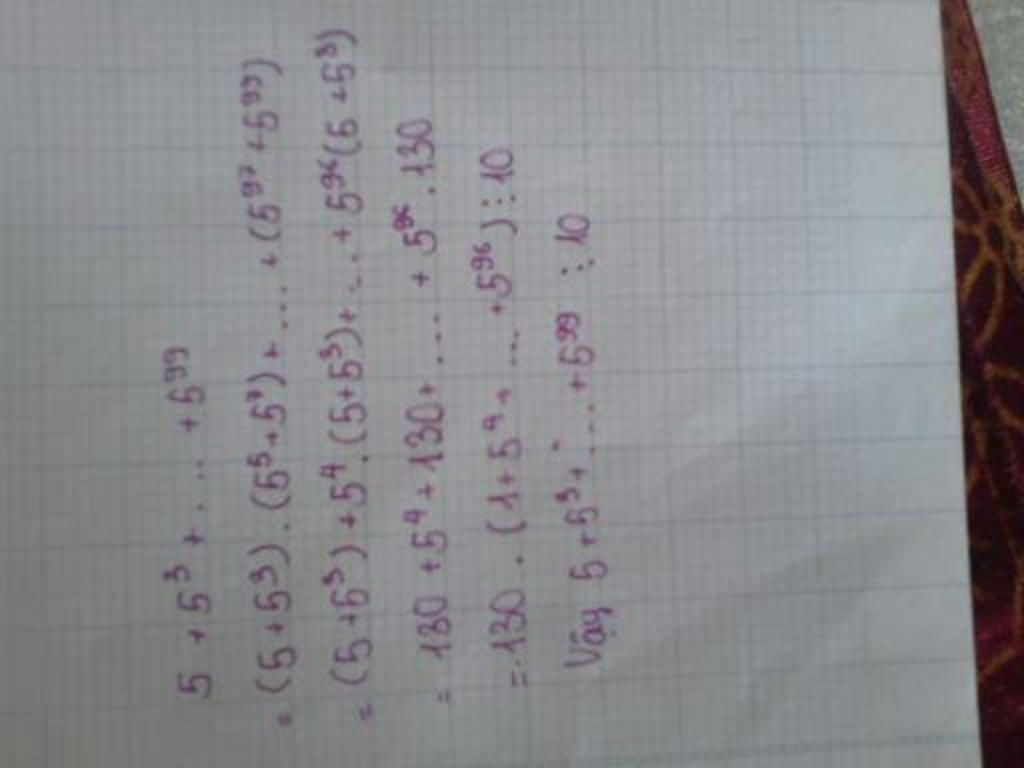 5 + 5³ + ... + 5⁹⁹
= (5 + 5³) . (5⁵ + 5⁷) + .... + (5⁹⁷ + 5⁹⁹)
= (5 + 5³) + 5⁴ . (5 + 5³) + ... + 5⁹⁶ (5 + 5³)
= 130 + 5⁴ + 130 + .... + 5⁹⁶ . 130
= 130 . (1 + 5⁴ + .... + 5⁹⁶) ⋮ 10
Vậy 5 + 5³ + .... + 5⁹⁹ ⋮ 10